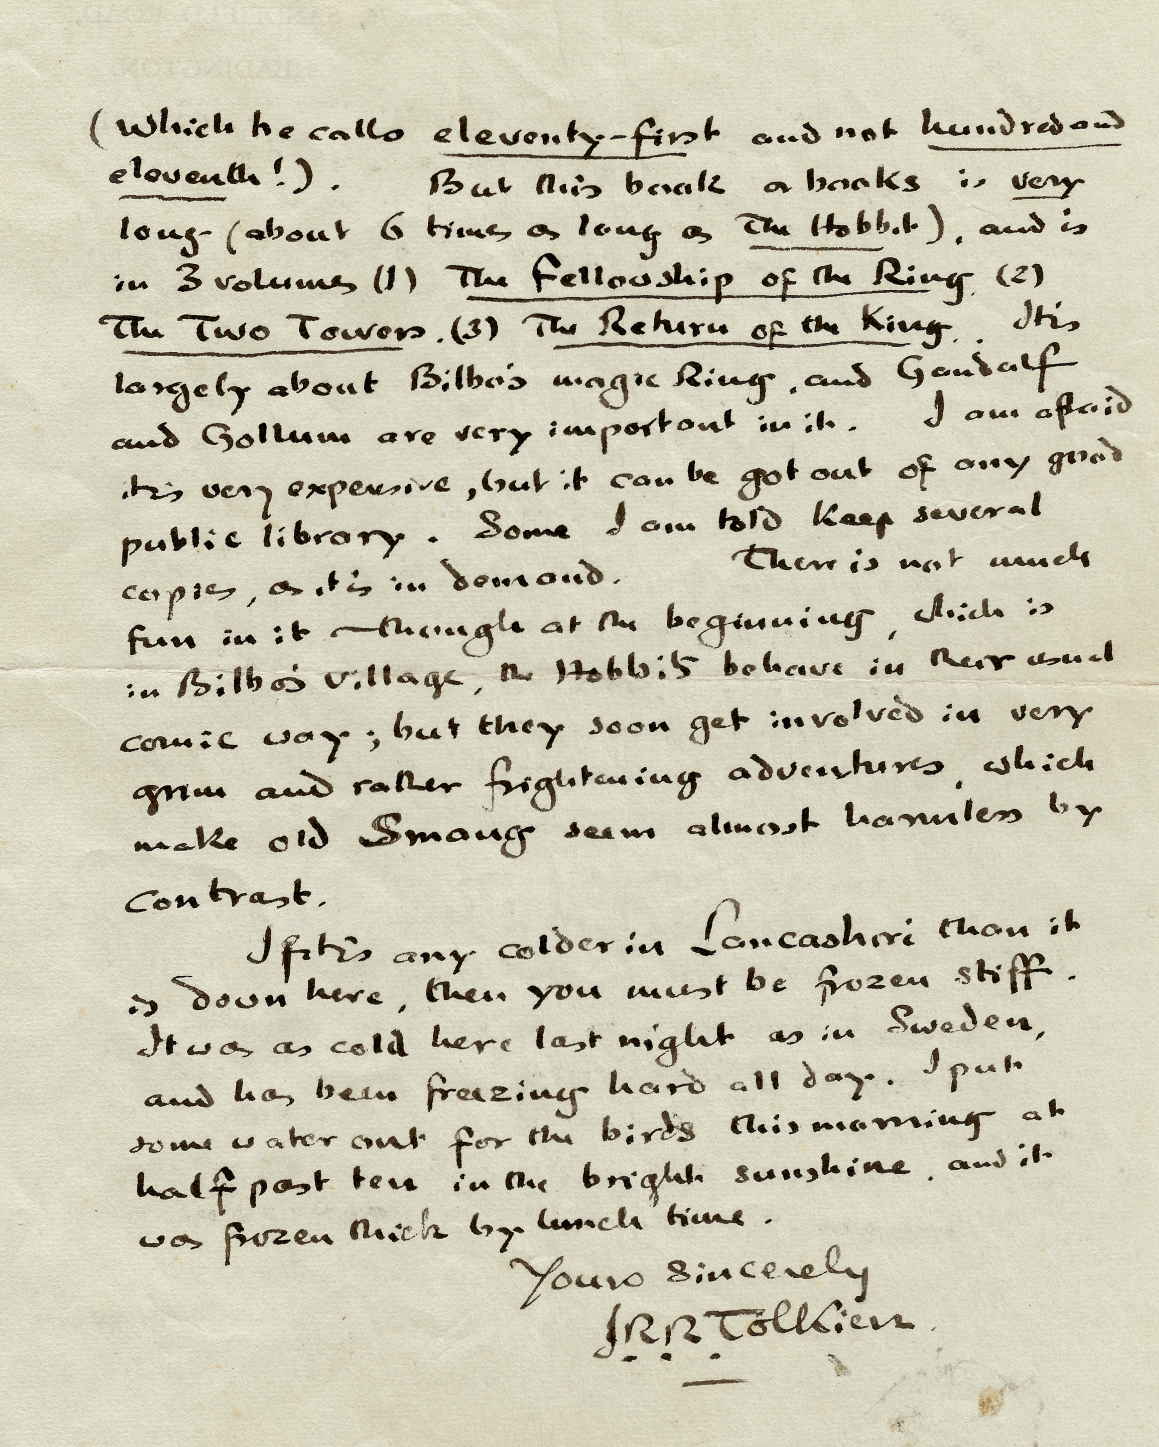 (which he calls eleventy-first and not hundred and
eleventh!). But this book or books is very
long (about 6 times as long as The Hobbit), and is
in 3 volumes (1) The Fellowship of the Ring (2)
The Two Towers. (3) The Return of the King. It is
largely about Bilbo's magic Ring, and Gandalf
and Gollum are very important in it. I am afraid
it is very expensive, but it can be got out of any good
public library. Some I am told keep several
copies, as it is in demand. There is not much
fun in it – though at the beginning, which is
in Bilbo's village, the Hobbits behave in their usual
comic way; but they soon get involved in very
grim and rather frightening adventures, which
make old Smaug seem almost harmless by
contrast.
If it is any colder in Lancashire than it
is down here, then you must be frozen stiff.
It was as cold here last night as in Sweden,
and has been freezing hard all day. I put
some water out for the birds this morning at
half past ten in the bright sunshine, and it
was frozen thick by lunch time.
Yours sincerely
J.R.R. Tolkien.